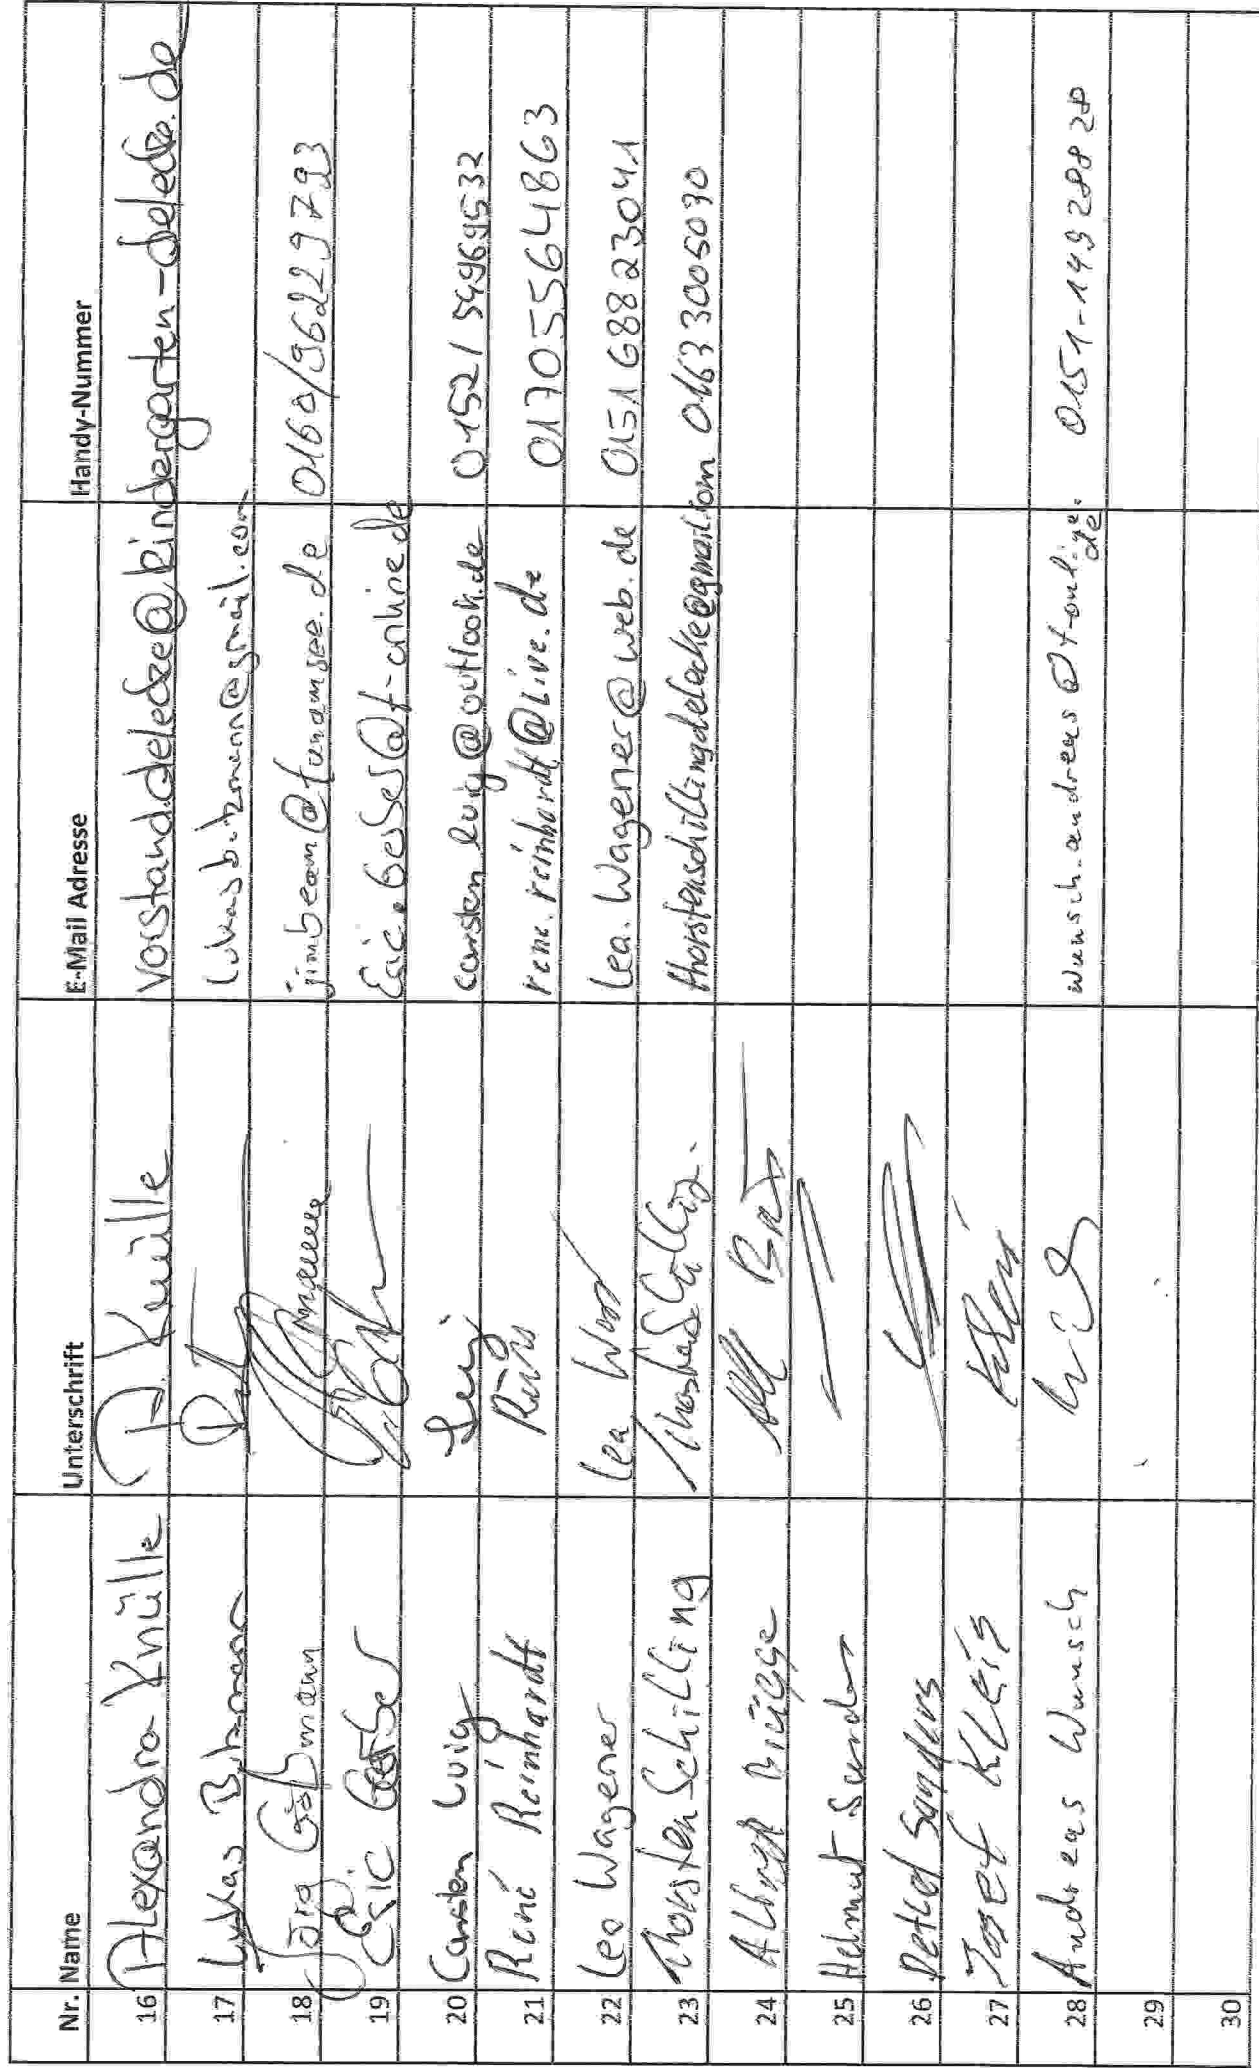 Nr. Name Unterschrift E-Mail Adresse Handy-Nummer
16 Alexandra Knülle A Knülle vorstand.delecke@kindergarten-delecke.de
17 Lukas Bitzmann lukasbitzmann@gmail.com
18 Jörg Gößmann jimbeam@funamsee.de 0160/96229793
19 Eric Gerber Eric.Gerber@t-online.de
20 Carsten Luig Luig carsten.luig@outlook.de 01521 54969532
21 René Reinhardt rene.reinhardt@live.de 01705564863
22 Lea Wagener Lea rea.wagener@web.de 015168823041
23 Thorsten Schilling Thorsten Schilling thorstenschillingdelecke@gmail.com 01633005030
24 Albert Brügge
25 Helmut Sander
26 Detlef Sanders
27 Josef Kleis
28 Andreas Wunsch wunsch.andreas@t-online.de 0151-14928828
29
30